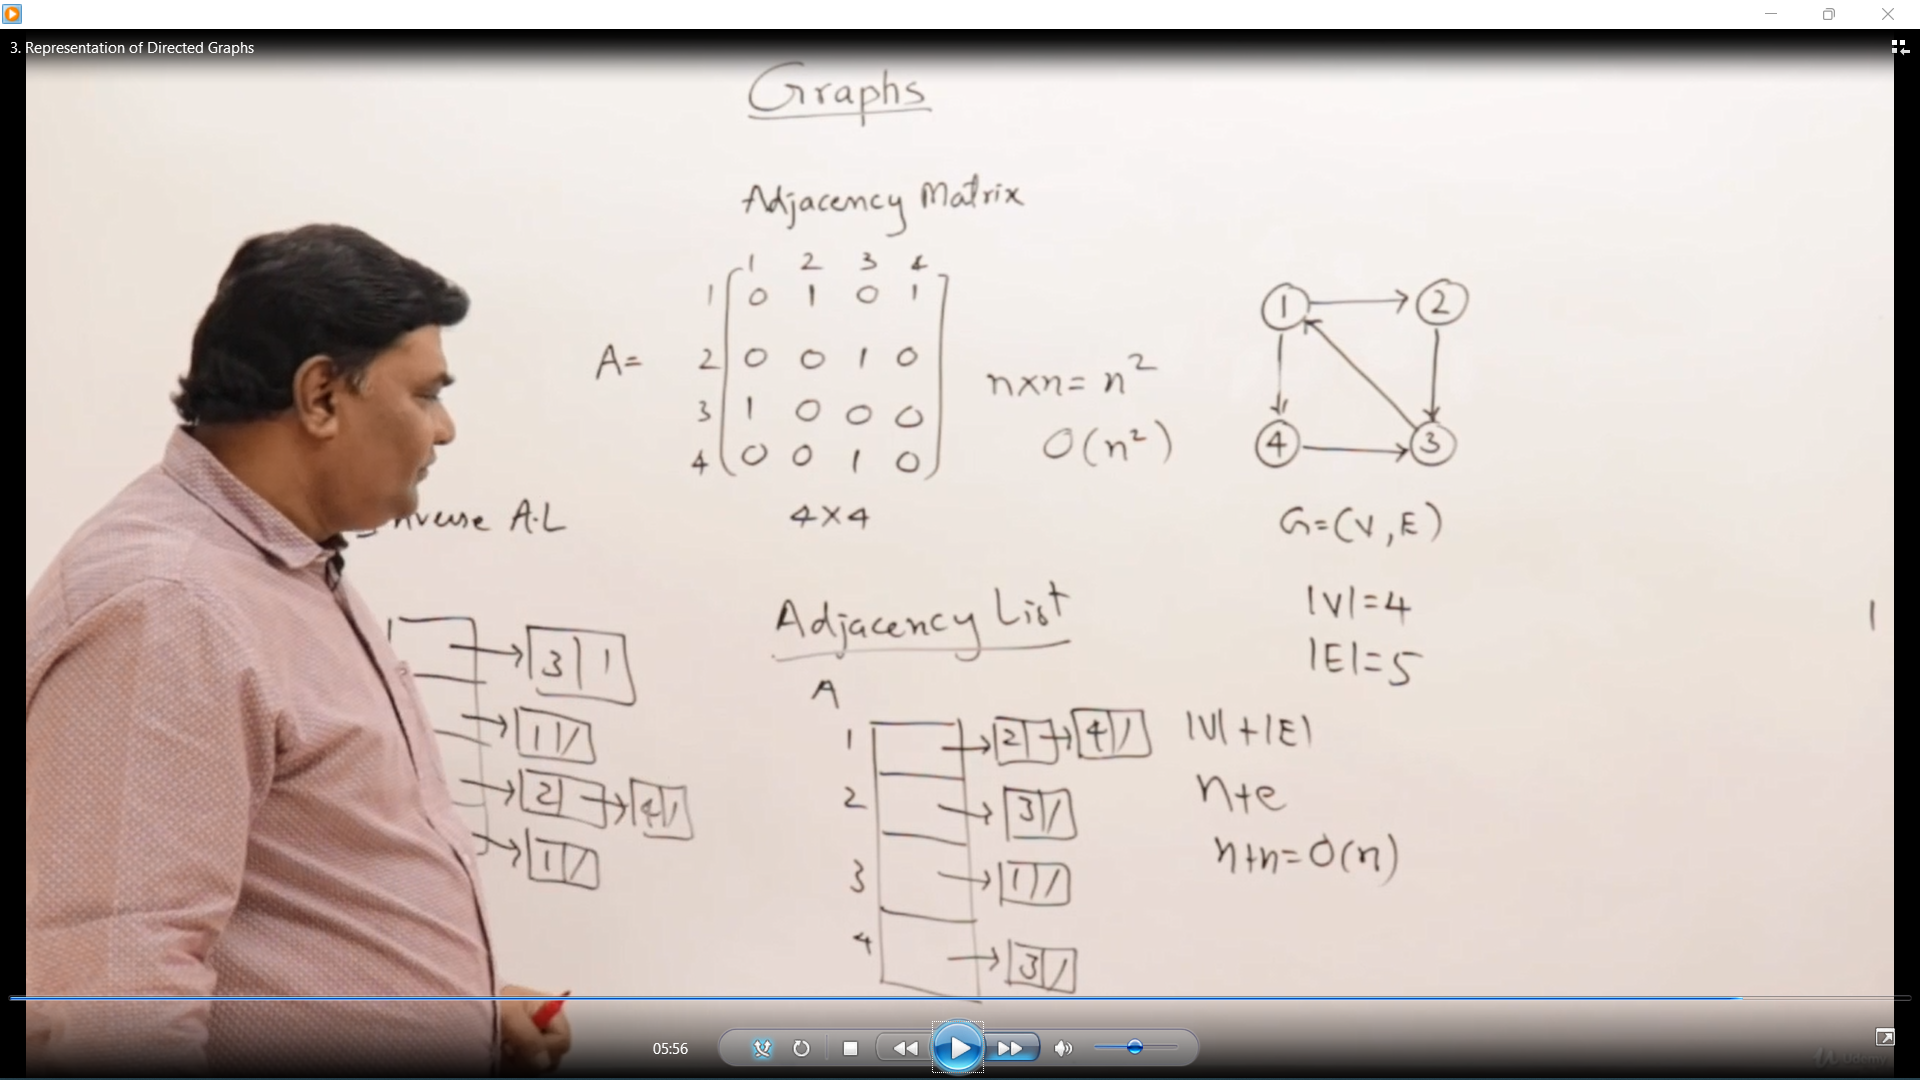 3. Representation of Directed Graphs
Graphs
Adjacency Matrix
1 2 3 4
1 0 1 0 1
A= 2 0 0 1 0
3 1 0 0 0
4 0 0 1 0
4×4
n×n=n²
O(n²)
1 2
4 3
G=(V,E)
|V|=4
|E|=5
A.L
3 1
1 /
2 4 /
1 /
Adjacency List
A
1 2 4 /
2 3 /
3 1 /
4 3 /
|V|+|E|
n+e
n+n=O(n)
05:56
Udemy